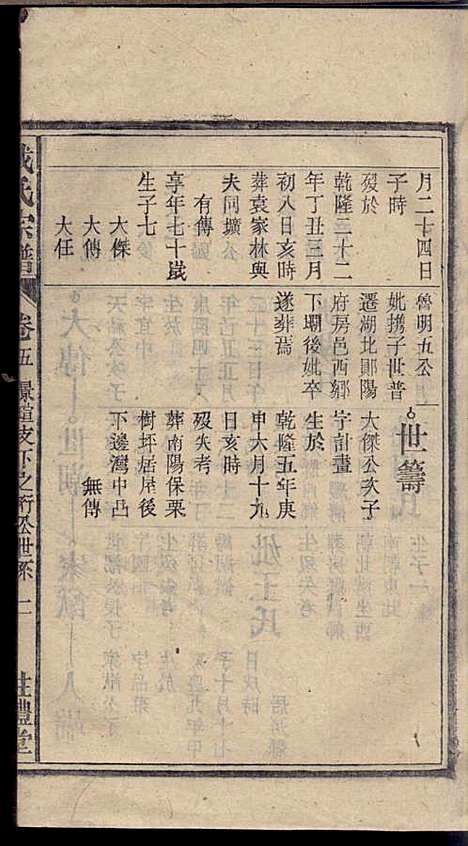 月二十四日
子時
歿於
乾隆二十二
年丁丑三月
初八日亥時
葬袁家林與
夫同壙
有傳
享年七十歲
生子七
大傑
大傳
大任
魯明五公
妣携子世普
遷湖北鄖陽
府房邑西鄉
下壩後妣卒
遂葬焉
世籌
大傑公次子
字計畫
生於
乾隆五年庚
申六月十九
日亥時
歿失考
葬南陽保栗
樹坪居屋後
下邊灣中凸
無傳
氏宗譜
卷五
景道支下之
公世系
二
禮堂